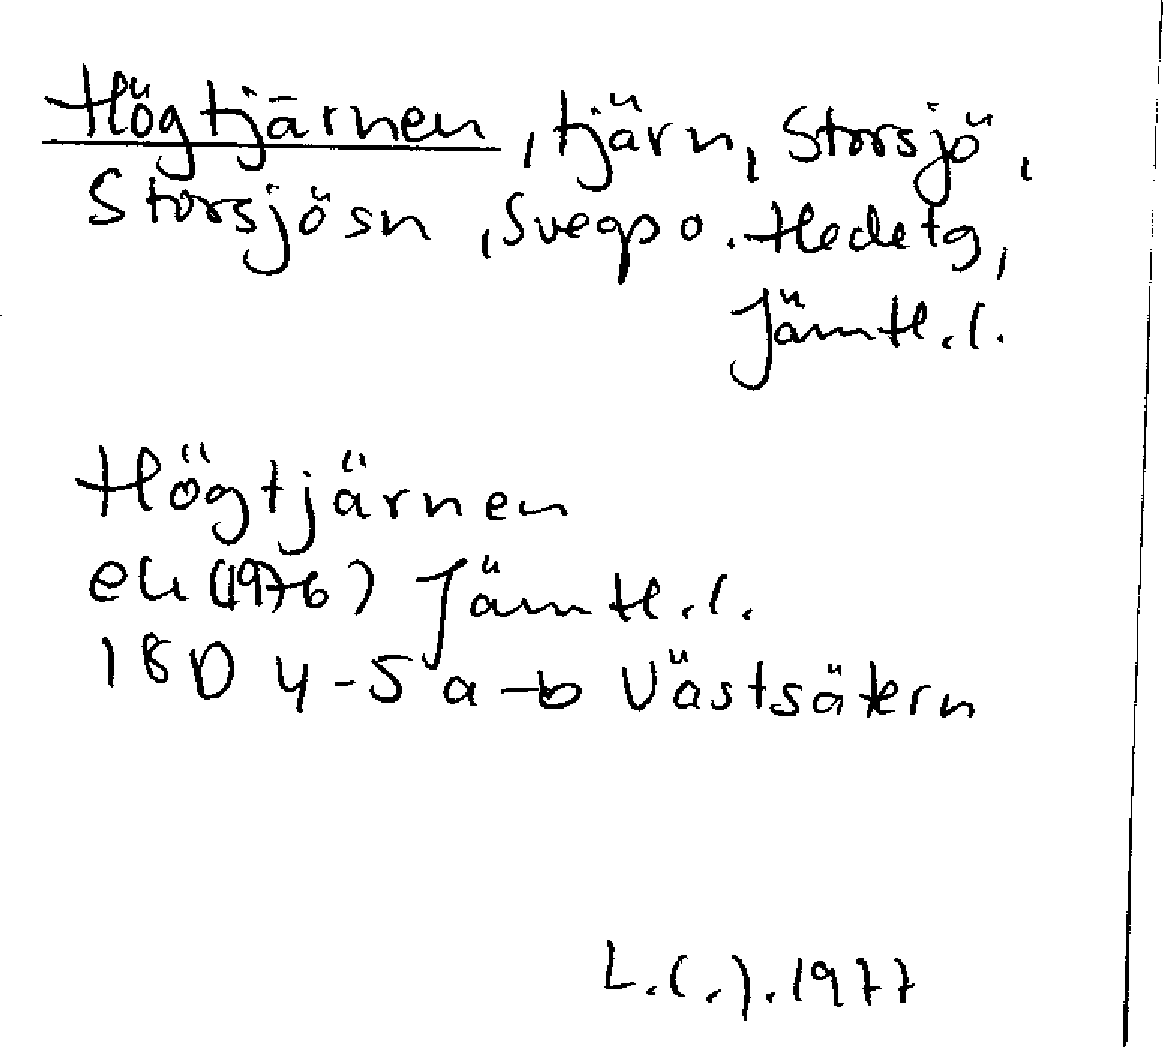 Högtjärnen, tjärn, Storsjö,
Storsjösn, Svegs o. Hedetg,
Jämtl.l.
Högtjärnen
ek (1976) Jämtl.l.
18D 4-5 a-b Västsätern
L.(.).1977